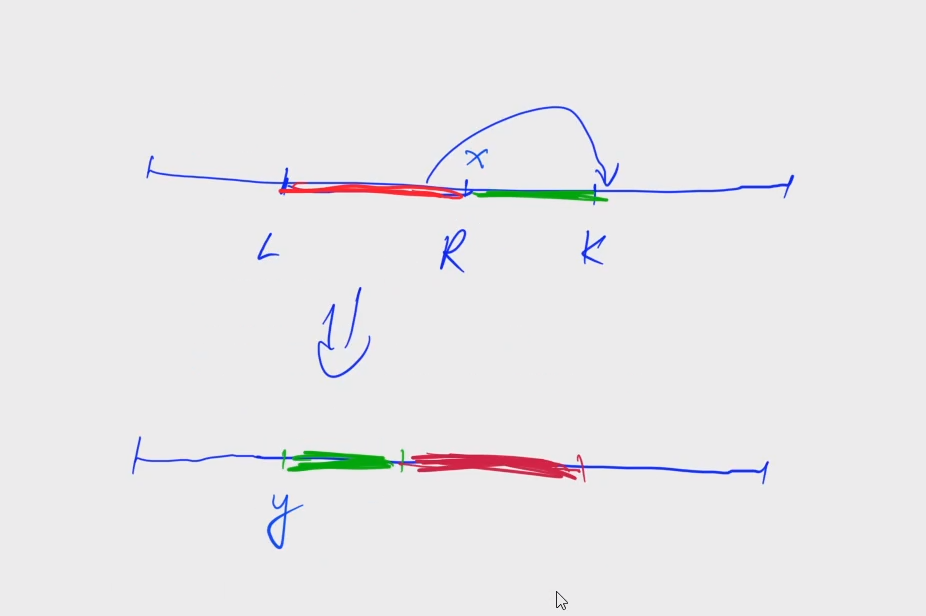 x
L R K
y